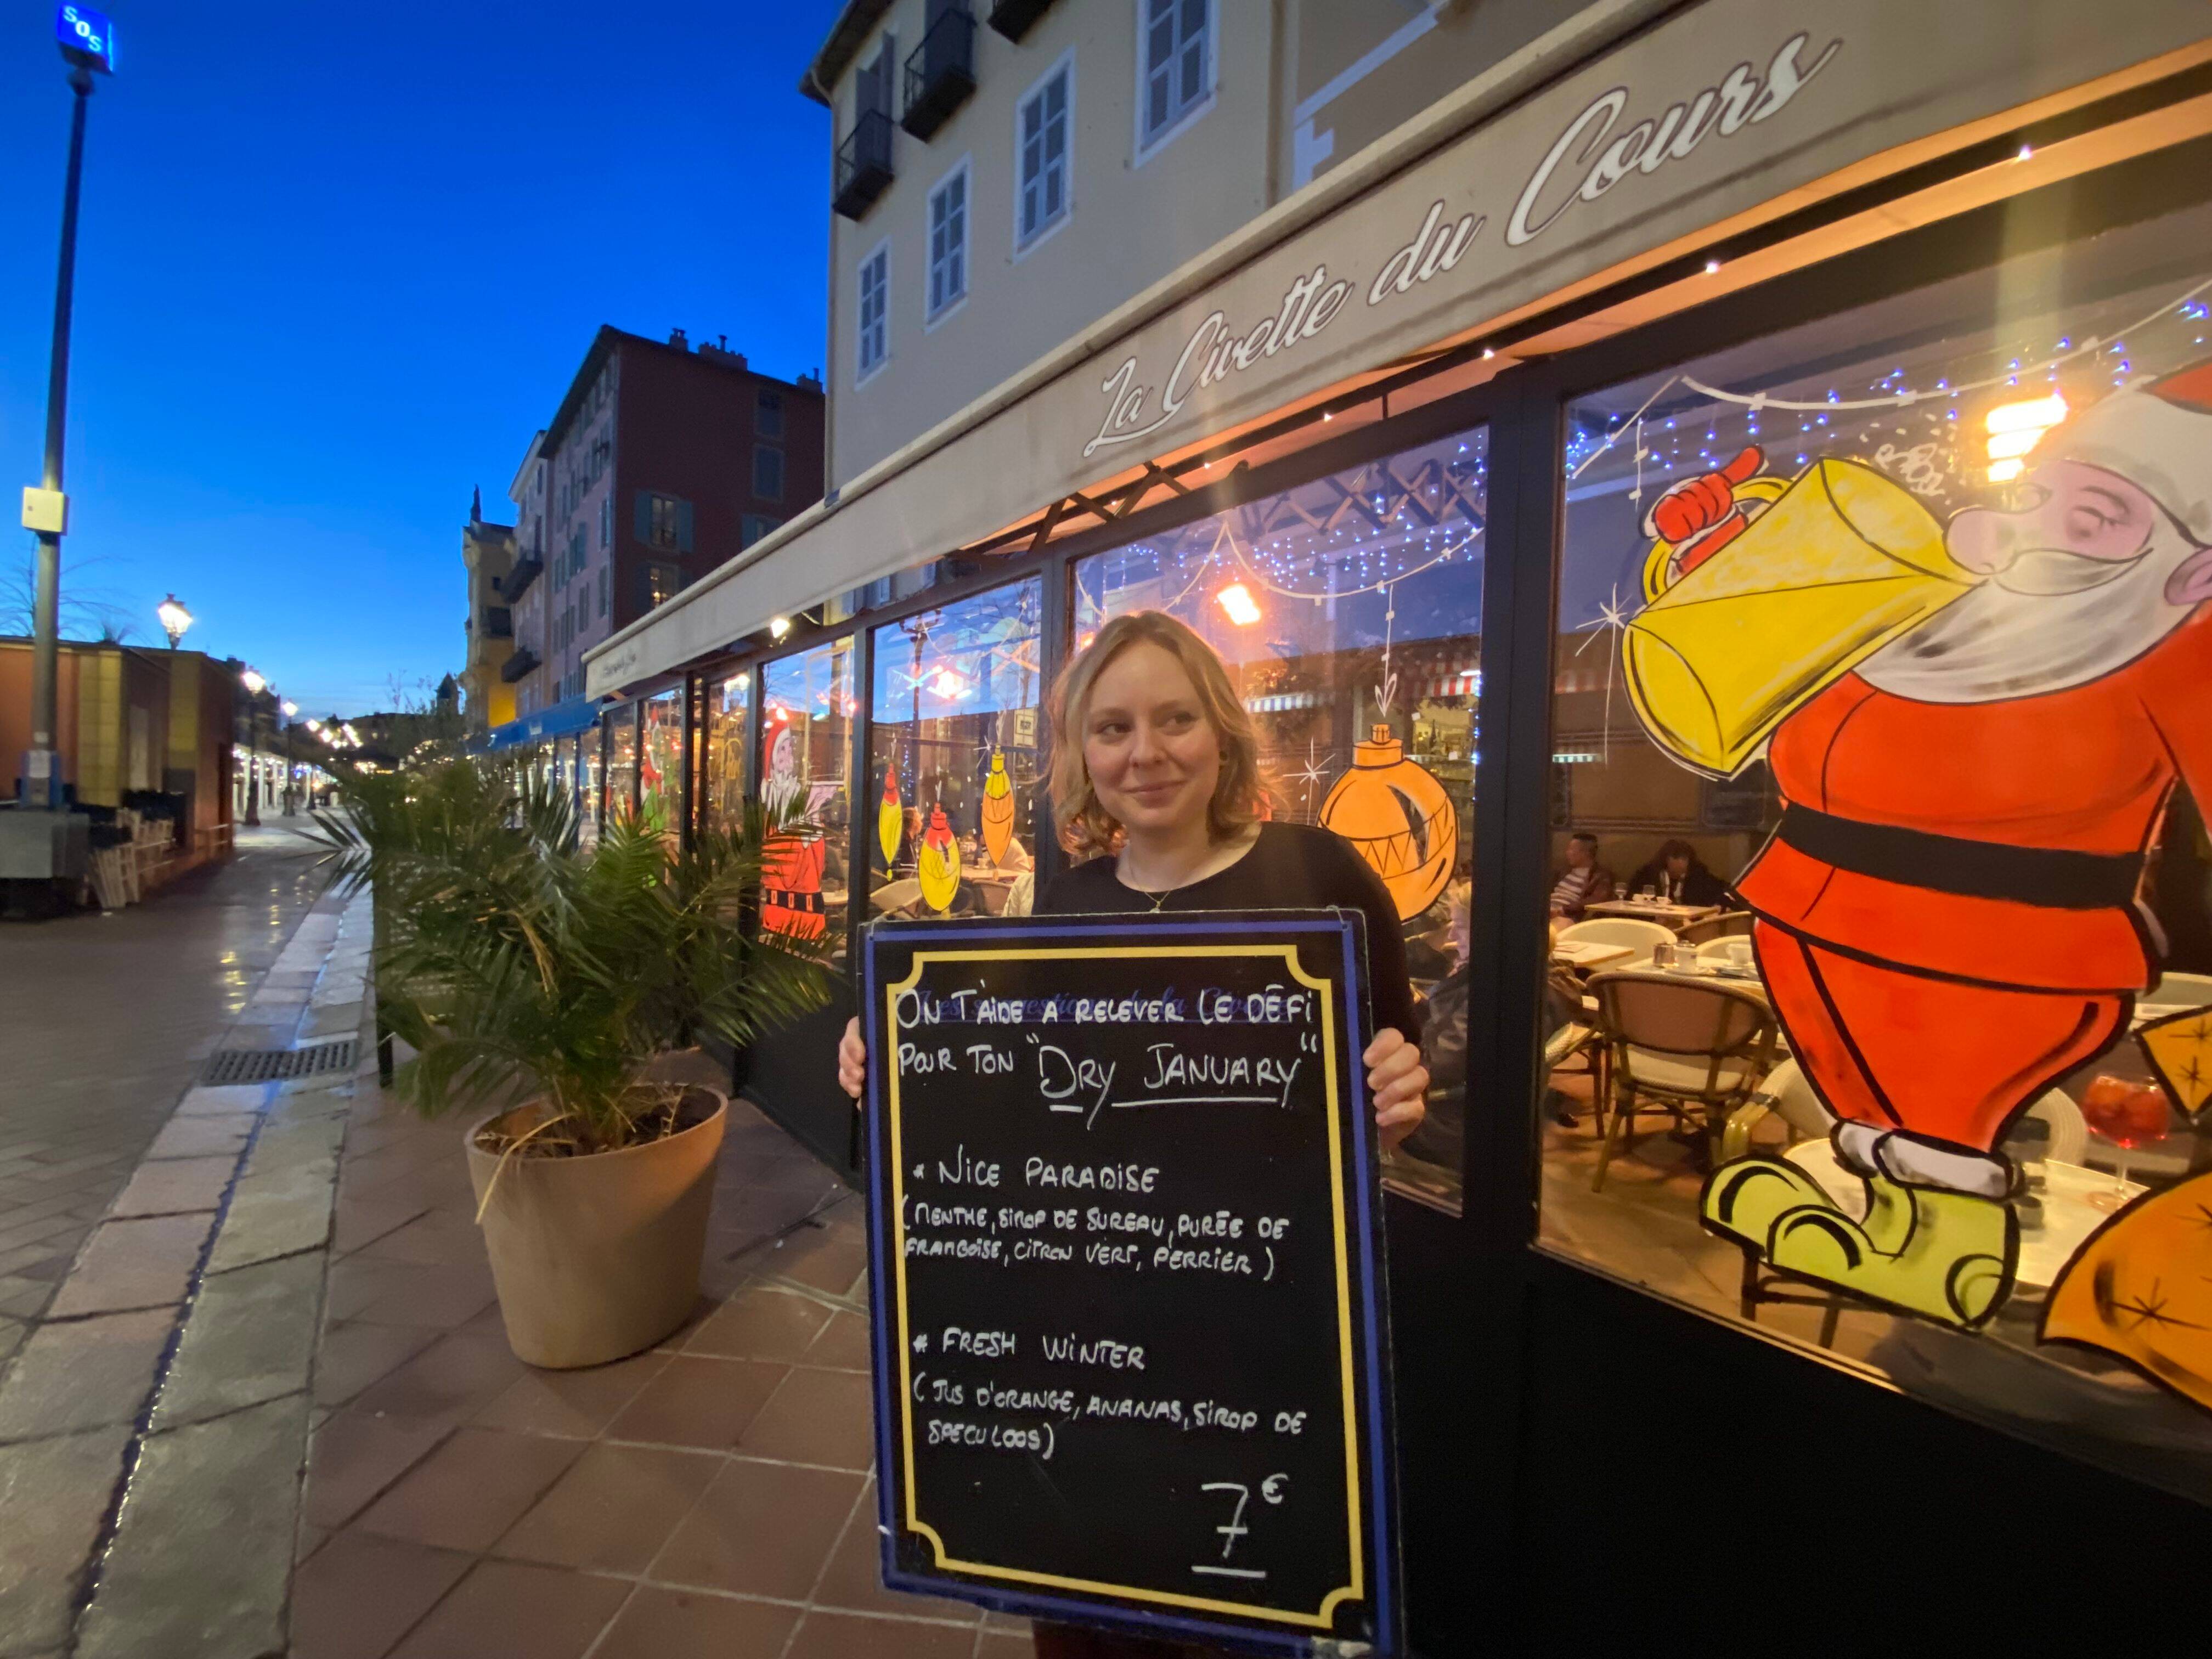 SOS
La Civette du Cours
ON T'AIDE A RELEVER LE DĒFi
POUR TON "DRY JANUARY"
* NiCE PARADiSE
(MENTHE, SiROP DE SUREAU, PURĒE DE
FRAMBOiSE, CiTRON VERT, PERRiER)
* FRESH WiNTER
(JUS D'ORANGE, ANANAS, SiROP DE
SPECULOOS)
7€